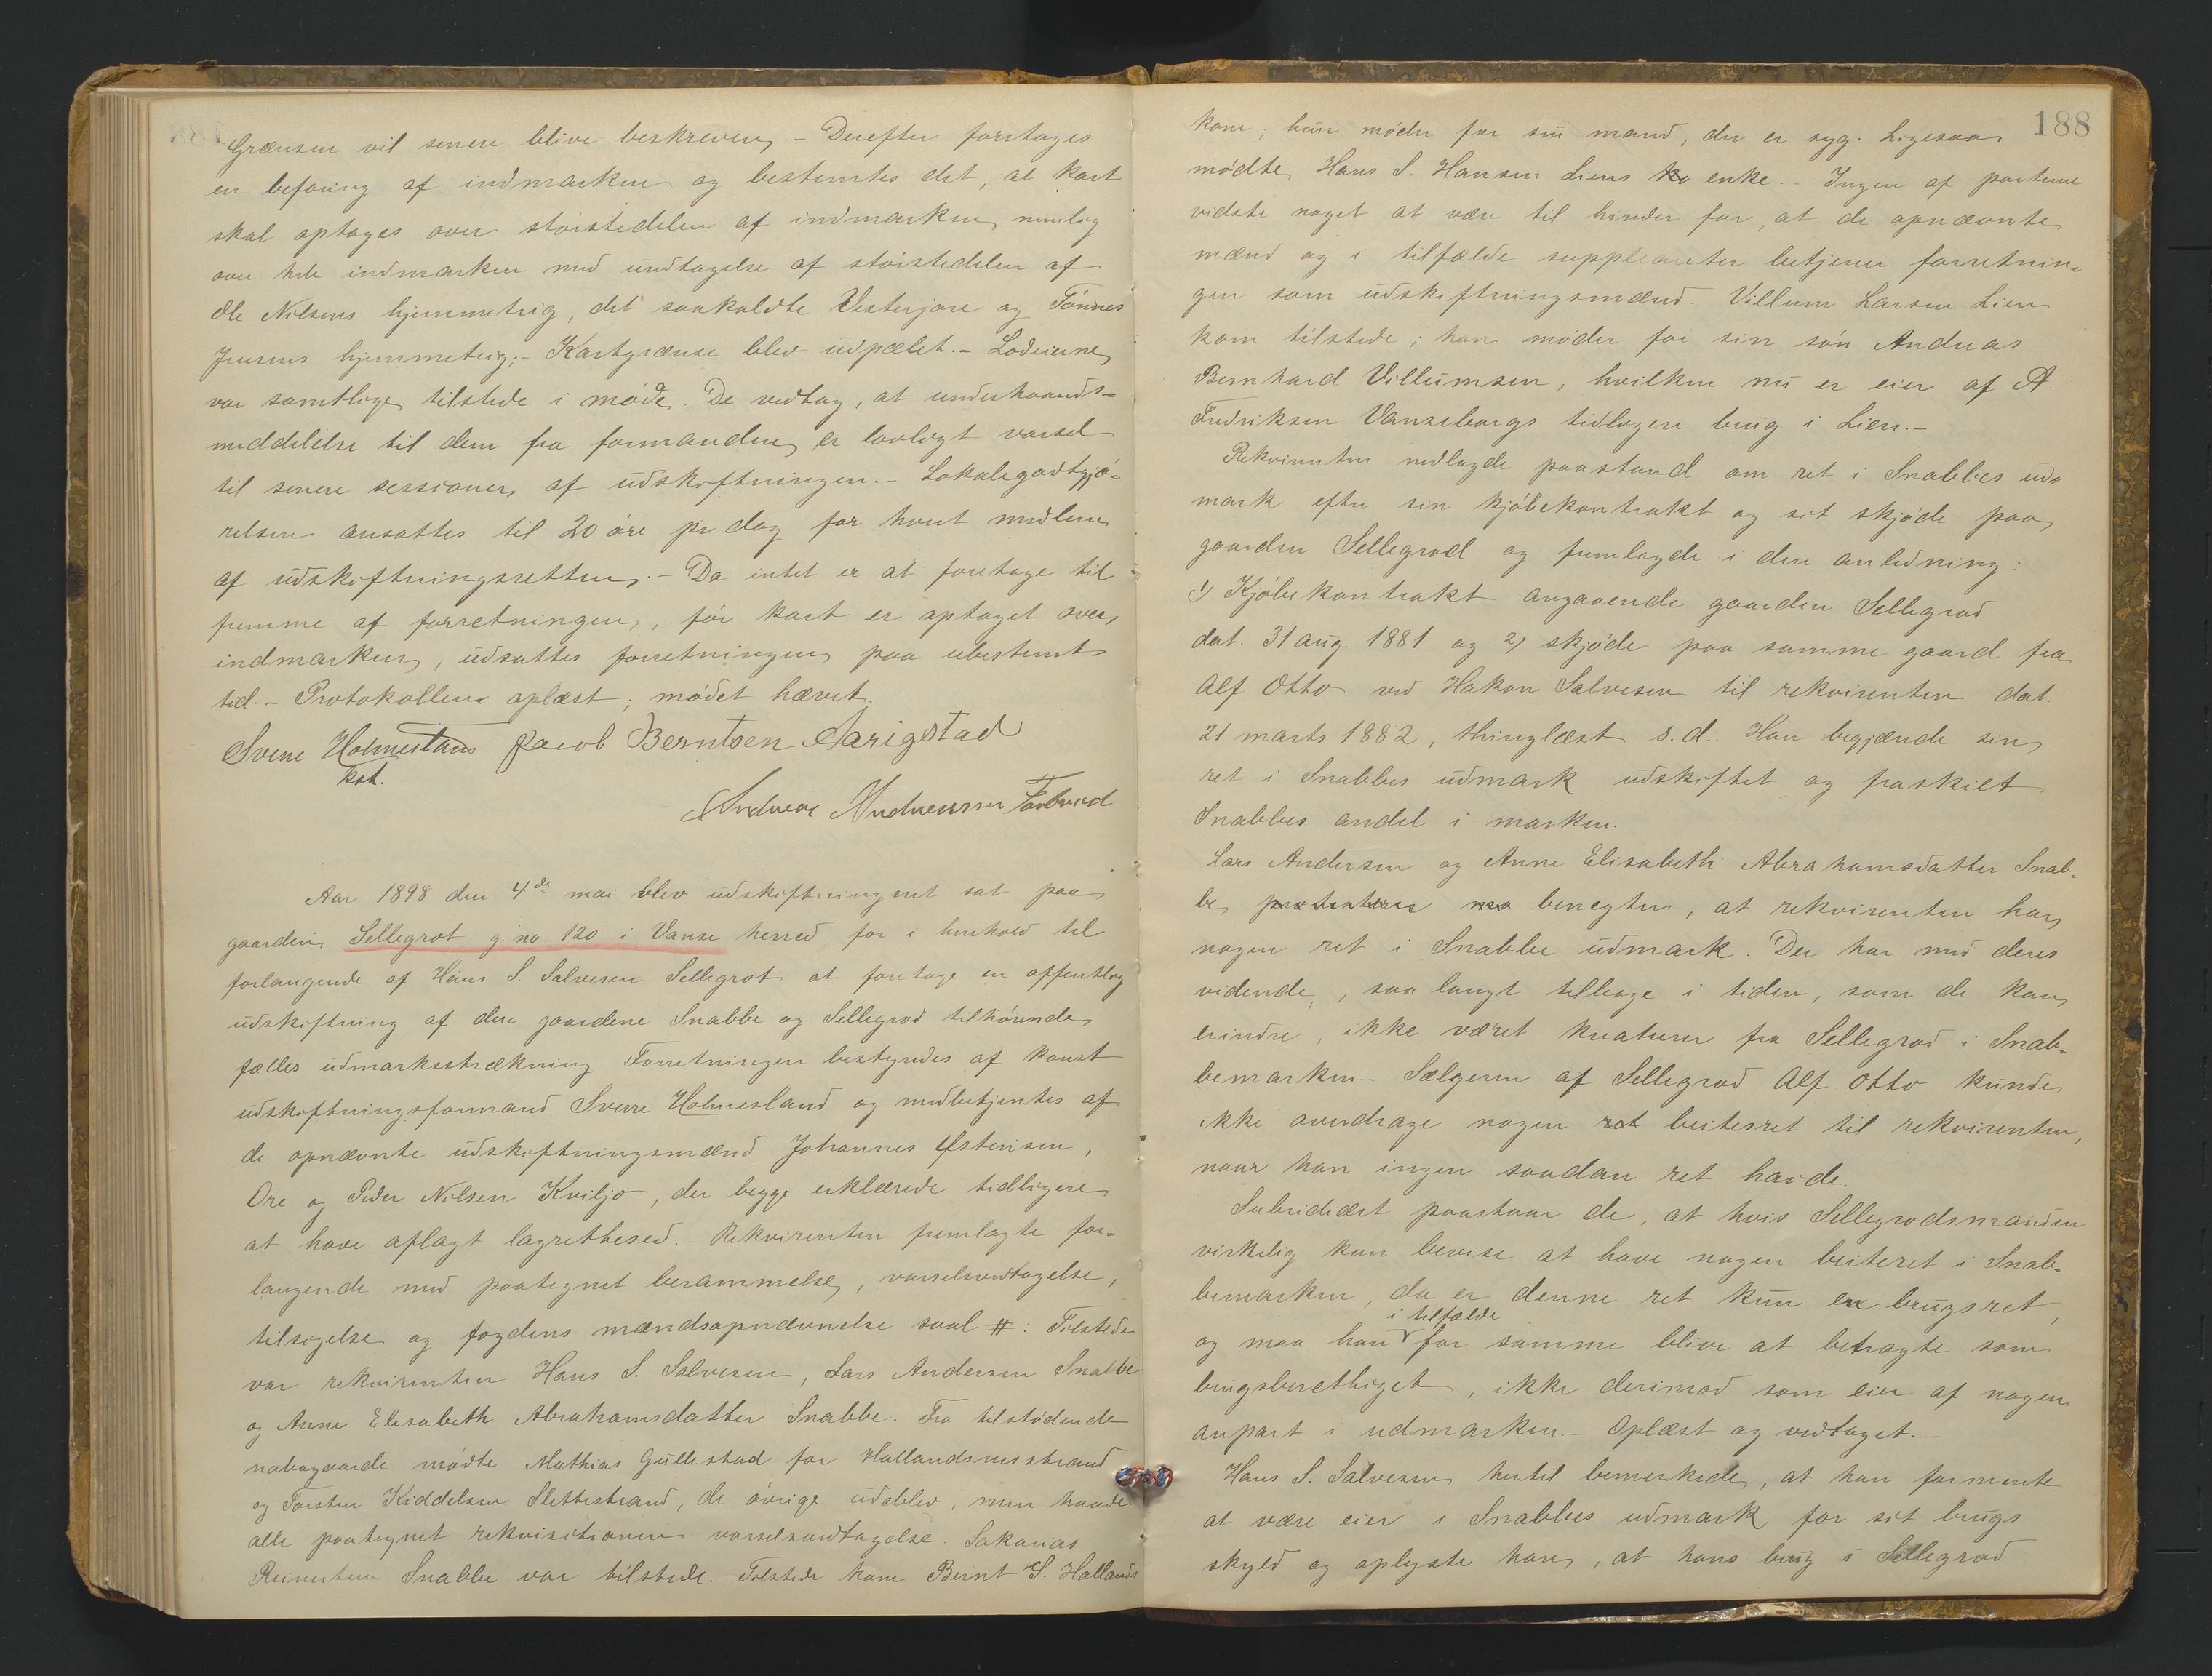 Grænsen vil senere blive beskreven. - Derefter foretages
en befaring af indmarken og bestemtes det, at kart
skal optages over størstedelen af indmarken, nemlig
over hele indmarken med undtagelse af størstedelen af
Ole Nilsens hjemmeteig, det saakaldte Vesterjore og Tønnes
Jensens hjemmeteig; - Kartgrænse blev udpælet. - Lodeierne
var samtlige tilstede i møde. De vedtog, at underhaands-
meddelelse til dem fra formanden er lovligt varsel
til senere sessioner af udskiftningen. - Lokalegodtgjø-
relsen ansattes til 20 øre pr dag for hvert medlem
af udskiftningsretten. - Da intet er at foretage til
fremme af forretningen, før kart er optaget over
indmarken, udsattes forretningen paa ubestemt
tid. - Protokollen oplæst; mødet hævet.
Sverre Holmesland Jacob Berntsen Aarigstad
kst.
Andreas Andreassen
Aar 1898 den 4de mai blev udskiftningsret sat paa
gaarden Sellegrot g. no 120 i Vanse herred for i henhold til
forlangende af Hans S. Salvesen Sellegrot at foretage en offentlig
udskiftning af den gaardene Snabbe og Sellegrod tilhørende
fælles udmarksstrækning. Forretningen bestyredes af konst
udskiftningsformand Sverre Holmesland og medbetjentes af
de opnævnte udskiftningsmænd Johannes Østensen,
Ore og Peder Nilsen Kviljo, der begge erklærede tidligere
at have aflagt lagrettesed. - Rekvirenten fremlagte for-
langende med paategnet berammelse, varselsvedtagelse,
tilsigelse og fogdens mændsopnævnelse saal #: Tilstede
var rekvirenten Hans S. Salvesen, Lars Andersen Snabbe
og Anne Elisabeth Abrahamsdatter Snabbe. Fra tilstødende
nabogaarde mødte Mathias Gullestad for Hallandsnesstrand
og Torsten Kiddelsen Slettestrand, de øvrige udeblev, men havde
alle paategnet rekvisitionen varselsvedtagelse. Sakarias
Reinertsen Snabbe var tilstede. Tilstede kom Bernt S. Hallands
188
kone; hun møder for sin mand, der er syg. Ligesaa
mødte Hans S. Hansen Liens ko enke. - Ingen af parterne
vidste noget at være til hinder for, at de opnævnte
mænd og i tilfælde suppleanter betjener forretnin-
gen som udskiftningsmænd. Villum Larsen Lien
kom tilstede; han møder for sin søn Andreas
Bernhard Villumsen, hvilken nu er eier af A.
Fredriksen Vanseborgs tidligere brug i Lien. -
Rekvirenten nedlagde paastand om ret i Snabbes ud-
mark efter sin kjøbekontrakt og sit skjøde paa
gaarden Sellegrod og fremlagde i den anledning:
1) Kjøbekontrakt angaaende gaarden Sellegrod
dat. 31 aug 1881 og 2) skjøde paa samme gaard fra
Alf Otto ved Hakon Salvesen til rekvirenten dat.
21 marts 1882, thinglæst s.d.. Han begjærede sin
ret i Snabbes udmark udskiftet og fraskilt
Snabbes andel i marken.
Lars Andersen og Anne Elisabeth Abrahamsdatter Snab-
be benegter, at rekvirenten har
nogen ret i Snabbe udmark. Der har med deres
vidende, saa langt tilbage i tiden, som de kan
erindre, ikke været kreaturer fra Sellegrod i Snab-
bemarken. - Sælgeren af Sellegrod Alf Otto kunde
ikke overdrage nogen ret beitesret til rekvirenten,
naar han ingen saadan ret havde.
Subsidiært paastaar de, at hvis Sellegrodsmanden
virkelig kan bevise at have nogen beiteret i Snab-
bemarken, da er denne ret kun en brugsret,
i tilfælde
og maa han for samme blive at betragte som
brugsberettiget, ikke derimod som eier af nogen
anpart i udmarken. - Oplæst og vedtaget. -
Hans S. Salvesen hertil bemerkede, at han formente
at være eier i Snabbes udmark for sit brugs
skyld og oplyste han, at hans brug i Sellegrod